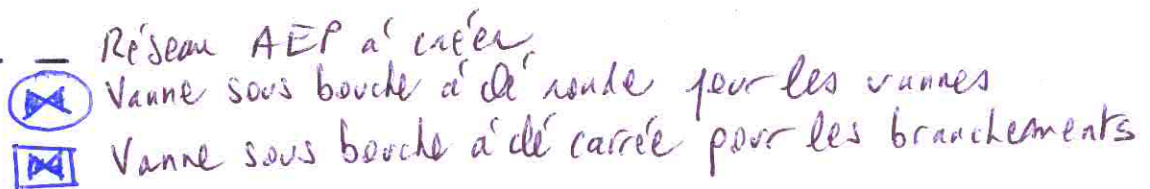 Réseau AEP à créer
Vanne sous bouche à clé ronde pour les vannes
Vanne sous bouche à clé carrée pour les branchements